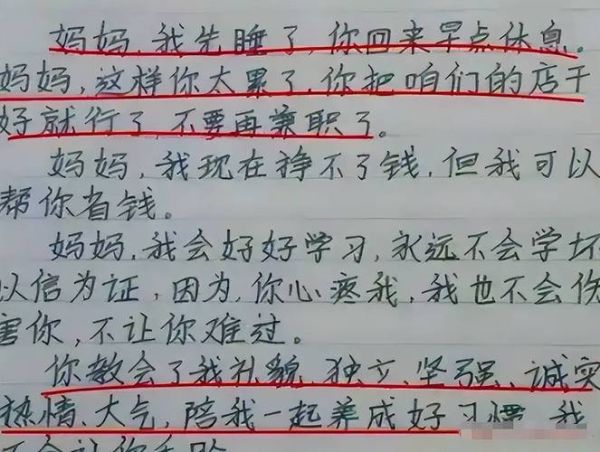 妈妈,我先睡了,你回来早点休息。
妈妈,这样你太累了,你把咱们的店干
好就行了,不要再兼职了。
妈妈,我现在挣不了钱,但我可以
帮你省钱。
妈妈,我会好好学习,永远不会学坏
以信为证,因为,你心疼我,我也不会伤
害你,不让你难过。
你教会了我礼貌、独立、坚强、诚实
热情、大气,陪我一起养成好习惯,我
不会让你